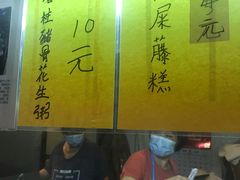 桂豬骨花生粥
10元
屎藤糕
元